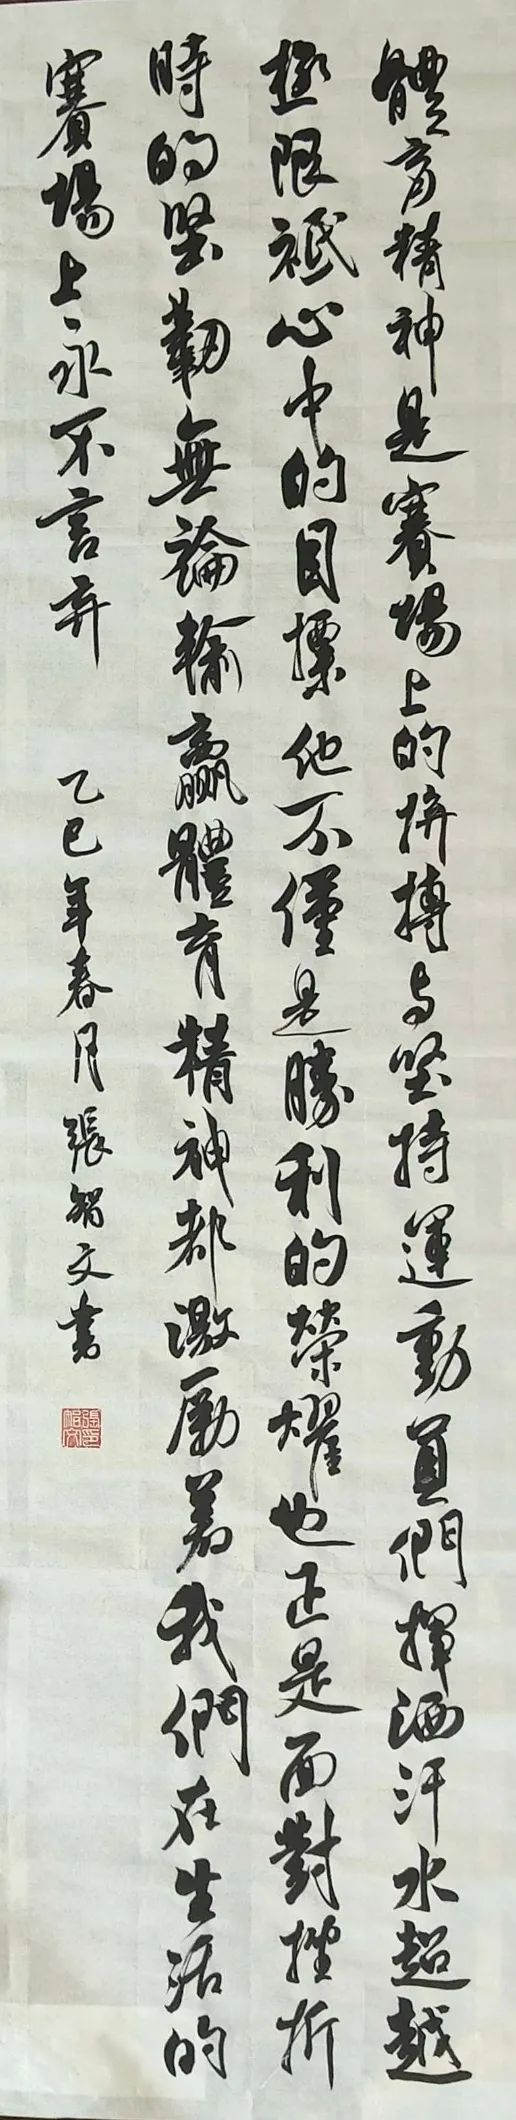 體育精神是賽場上的拚搏与坚持運動員們揮洒汗水超越
極限祗心中的目標他不僅是勝利的榮耀也正是面對挫折
時的坚韌無論輸贏體育精神都激勵着我們在生活的
賽場上永不言弃
乙巳年春月張智文書